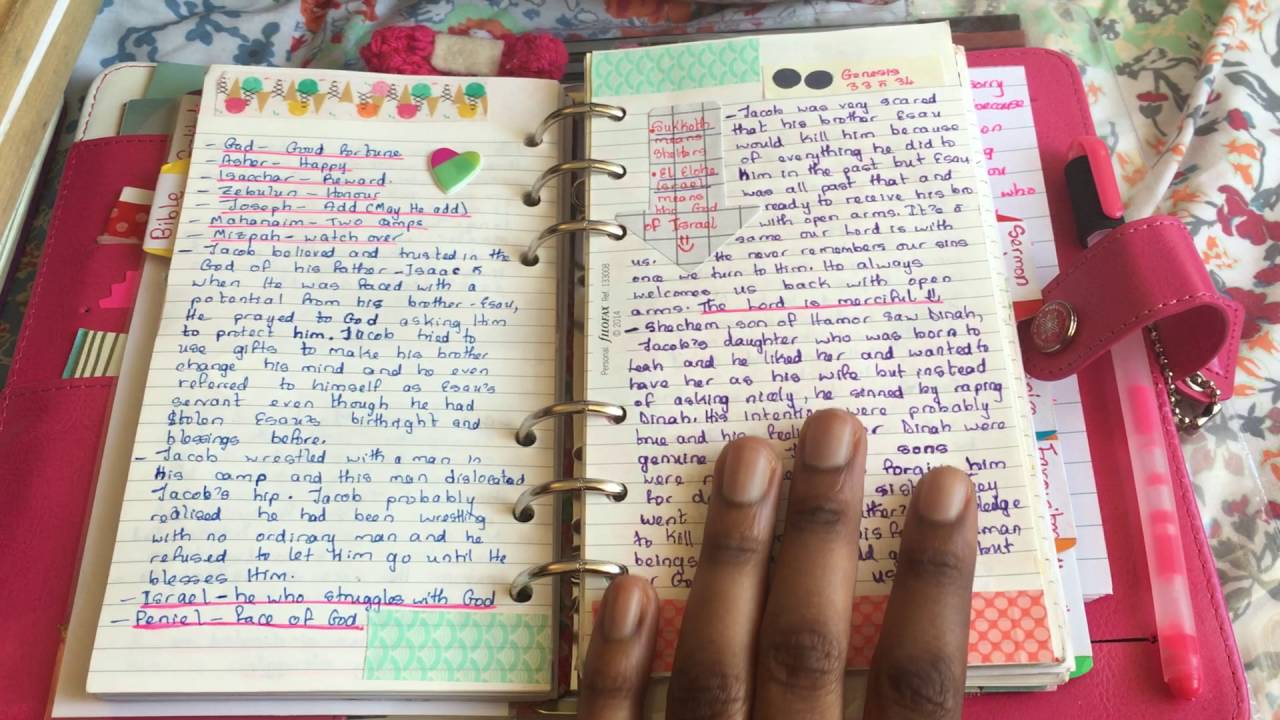 - Gad - Good Fortune
- Asher - Happy
- Isacchar - Reward.
- Zebulun - Honour
- Joseph - Add (May He add)
- Mahanaim - Two camps
- Mizpah - watch over
- Jacob believed and trusted in the
God of his Father - Isaac &
when He was faced with a
potential from his brother - Esau,
He prayed to God asking Him
to protect him. Jacob tried to
use gifts to make his brother
change his mind and he even
referred to himself as Esau's
servant even though he had
stolen Esau's birthright and
blessings before.
- Jacob wrestled with a man in
his camp and this man dislocated
Jacob's hip. Jacob probably
realised he had been wrestling
with no ordinary man and he
refused to let Him go until He
blesses Him.
- Israel - he who struggles with God
- Peniel - Face of God
Bible
Genesis
33 & 34
• Sukkoth
means
Shelters
• El Elohe
Israel
means
the God
of Israel
- Jacob was very scared
that his brother Esau
would kill him because
of everything he did to
Him in the past but Esau
was all past that and
ready to receive his bro
with open arms. It's a
same our Lord is with
us. He never remembers our sins
once we turn to Him. He always
welcomes us back with open
arms. The Lord is merciful
- Shechem, son of Hamor saw Dinah,
Jacob's daughter who was born to
Leah and he liked her and wanted to
have her as his wife but instead
of asking nicely, he sinned by raping
Dinah. His were probably
true and his Dinah were
genuine sons
were him
for
went
to kill man
beings but
us
Personal filofax Ref. 133008
© 2014
sorry
because
on
who
Sermon